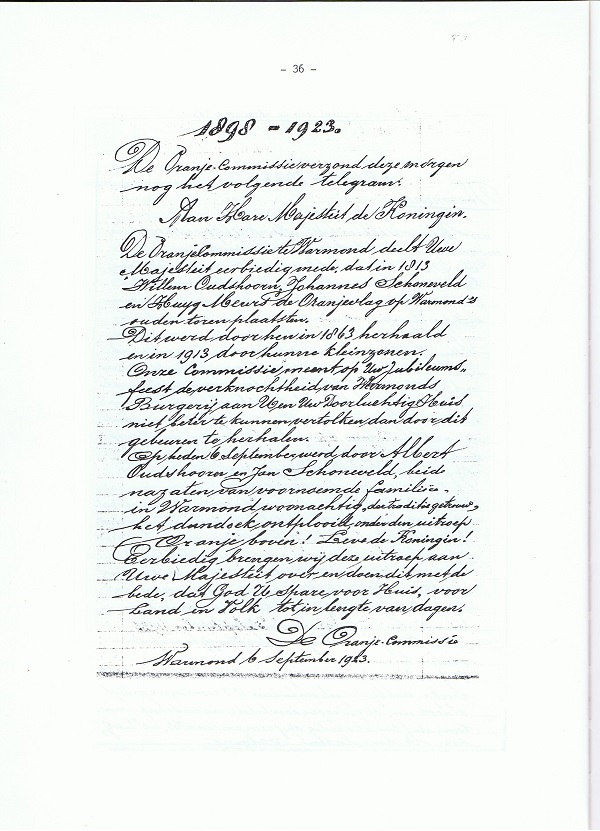 - 36 -
1898 - 1923.
De Oranje-Commissie verzond deze morgen
nog het volgende telegram:
Aan Hare Majesteit de Koningin.
De OranjeCommissie te Warmond, deelt Uwe
Majesteit eerbiedig mede, dat in 1813
Willem Oudshoorn, Johannes Schoneveld
en Huyg Meurs de Oranjevlag op Warmond's
ouden toren plaatsten.
Dit werd door hen in 1863 herhaald
en in 1913 door hunne kleinzonen.
Onze Commissie meent op Uw Jubileums-
feest de verknochtheid van Warmonds
Burgerij aan U en Uw Doorluchtig Huis
niet beter te kunnen vertolken dan door dit
gebeuren te herhalen.
Op heden 6 September werd door Albert
Oudshoorn en Jan Schoneveld, beide
nazaten van voornoemde familie's
in Warmond woonachtig, der traditie getrouw,
het dundoek ontplooid onder den uitroep
Oranje boven! Leve de Koningin!
Eerbiedig brengen wij deze uitroep aan
Uwe Majesteit over en doen dit met de
bede, dat God U spare voor Huis, voor
Land en Volk tot in lengte van dagen.
De Oranje-Commissie
Warmond 6 September 1923.